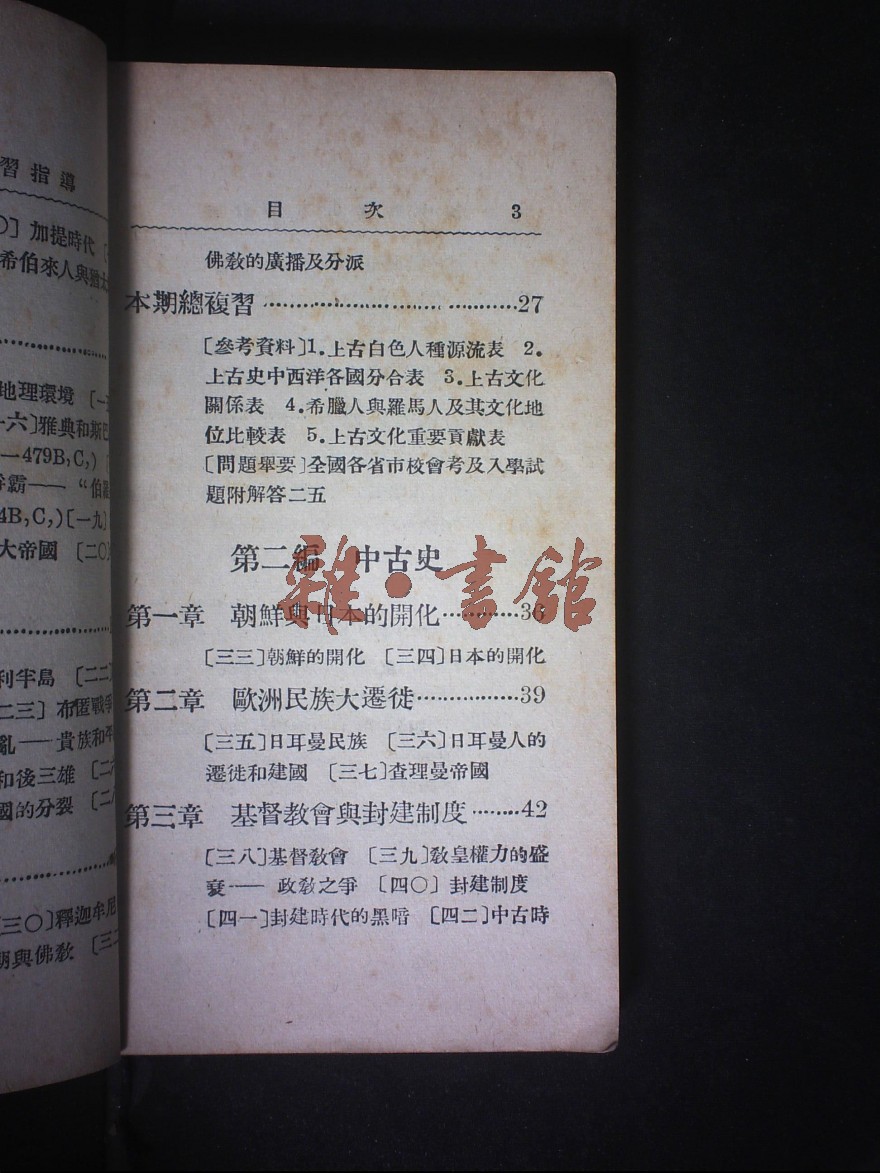 習指導
〇〕加提時代
希伯來人與猶太
地理環境
六〕雅典和斯巴
—479B,C,)
爭霸—— “伯羅
4B,C,)〔一九〕
大帝國 〔二〇〕
利半島 〔二二〕
二三〕布匿戰爭
亂——貴族和平
和後三雄
國的分裂
〔三〇〕釋迦牟尼
期與佛教
目次 3
佛教的廣播及分派
本期總複習…………………………27
〔參考資料〕1.上古白色人種源流表 2.
上古史中西洋各國分合表 3.上古文化
關係表 4.希臘人與羅馬人及其文化地
位比較表 5.上古文化重要貢獻表
〔問題舉要〕全國各省市校會考及入學試
題附解答二五
第二編 中古史
雜·書館
第一章 朝鮮與日本的開化…………36
〔三三〕朝鮮的開化 〔三四〕日本的開化
第二章 歐洲民族大遷徙………………39
〔三五〕日耳曼民族 〔三六〕日耳曼人的
遷徙和建國 〔三七〕查理曼帝國
第三章 基督教會與封建制度………42
〔三八〕基督教會 〔三九〕教皇權力的盛
衰—— 政教之爭 〔四〇〕封建制度
〔四一〕封建時代的黑暗 〔四二〕中古時